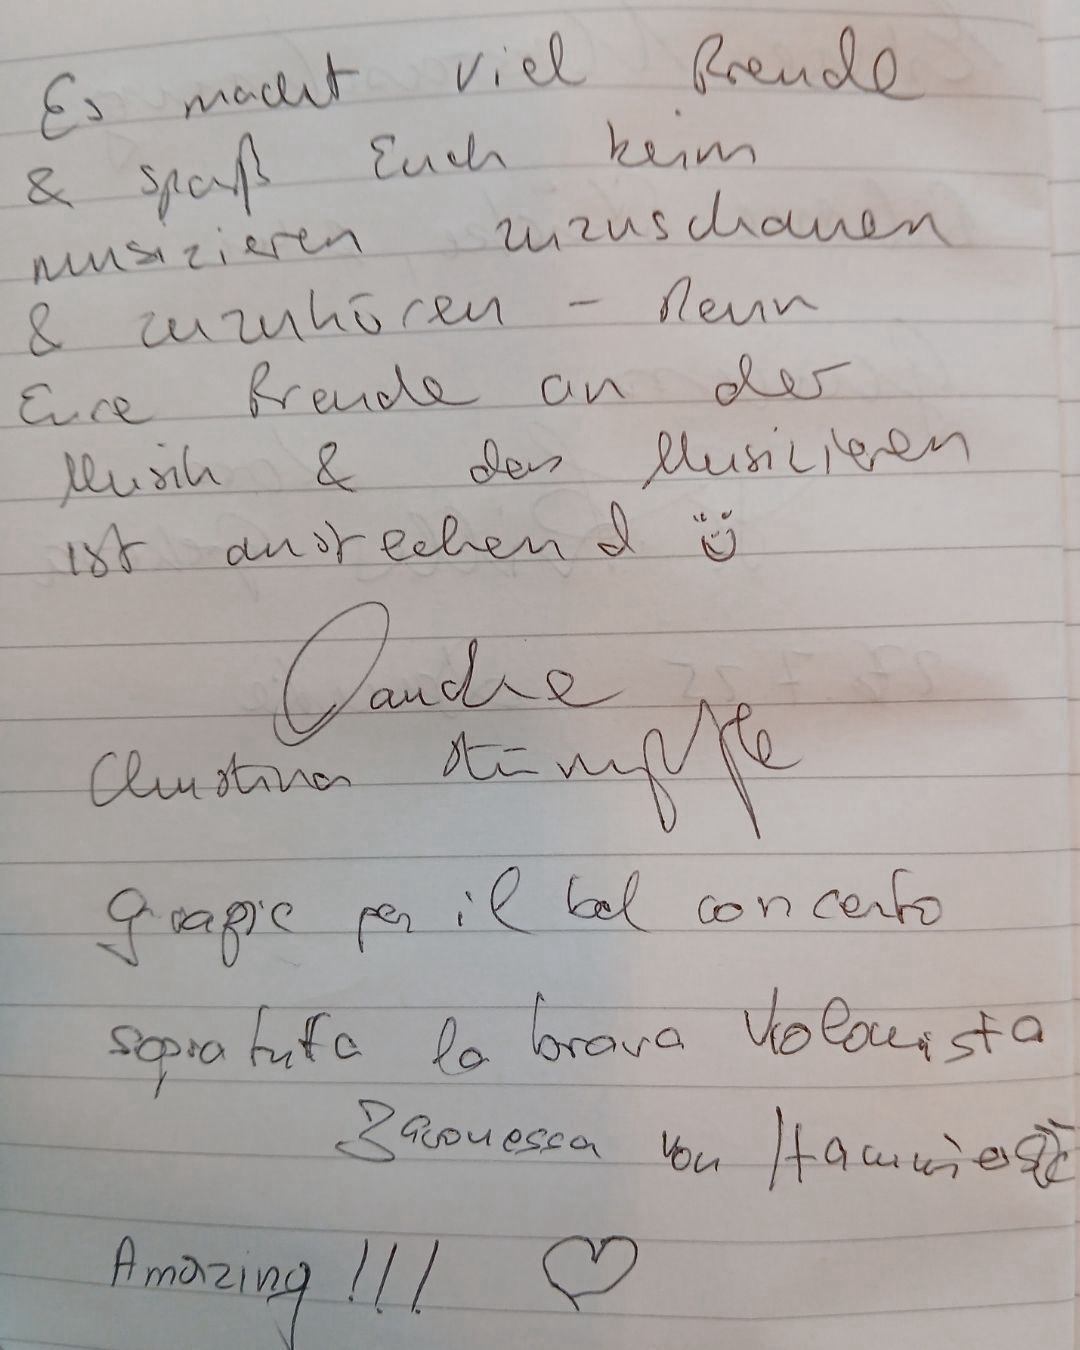 Es macht viel Freude
& spaß Euch beim
musizieren zuzuschauen
& zuzuhören - Denn
Eure Freude an der
Musik & das Musizieren
ist ansteckend
Danche
Christina
Grazie per il bel concerto
sopratutto la brava violonista
Baronessa von
Amazing!!!